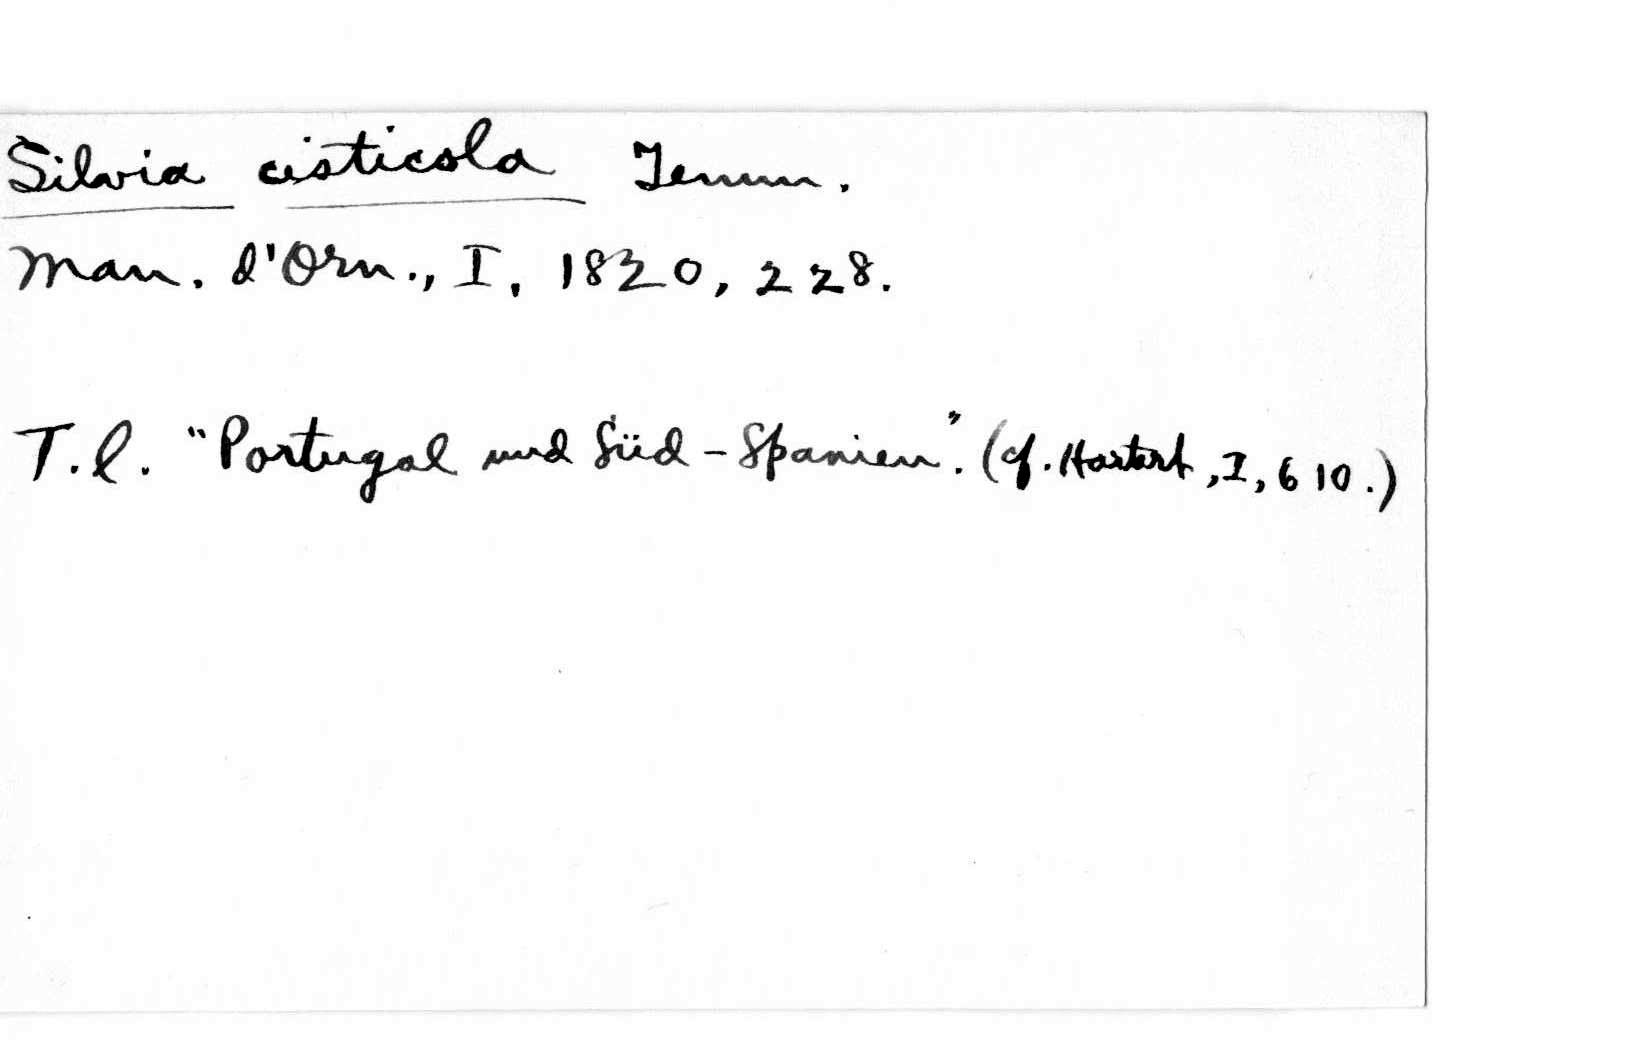 Silvia cisticola Temm.
Man. d'Orn., I, 1820, 228.
T.l. "Portugal und Süd-Spanien". (cf. Hartert, I, 610.)